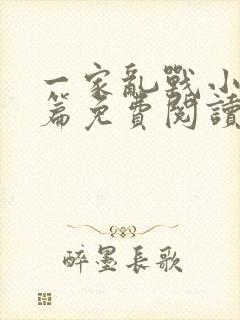 一家亂戰小
篇免費閱讀
醉墨長歌